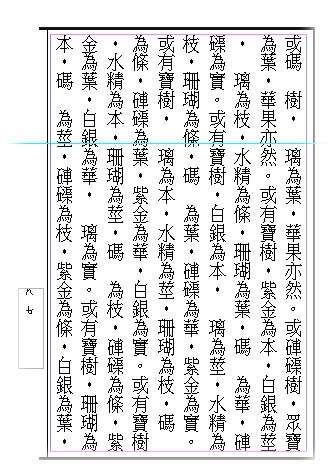 或碼　樹・　璃為葉・華果亦然。或硨磲樹・眾寶
為葉・華果亦然。或有寶樹・紫金為本・白銀為莖
・　璃為枝・水精為條・珊瑚為葉・碼　為華・硨
磲為實。或有寶樹・白銀為本・　璃為莖・水精為
枝・珊瑚為條・碼　為葉・硨磲為華・紫金為實。
或有寶樹・　璃為本・水精為莖・珊瑚為枝・碼
為條・硨磲為葉・紫金為華・白銀為實。或有寶樹
・水精為本・珊瑚為莖・碼　為枝・硨磲為條・紫
金為葉・白銀為華・　璃為實。或有寶樹・珊瑚為
本・碼　為莖・硨磲為枝・紫金為條・白銀為葉・
八七